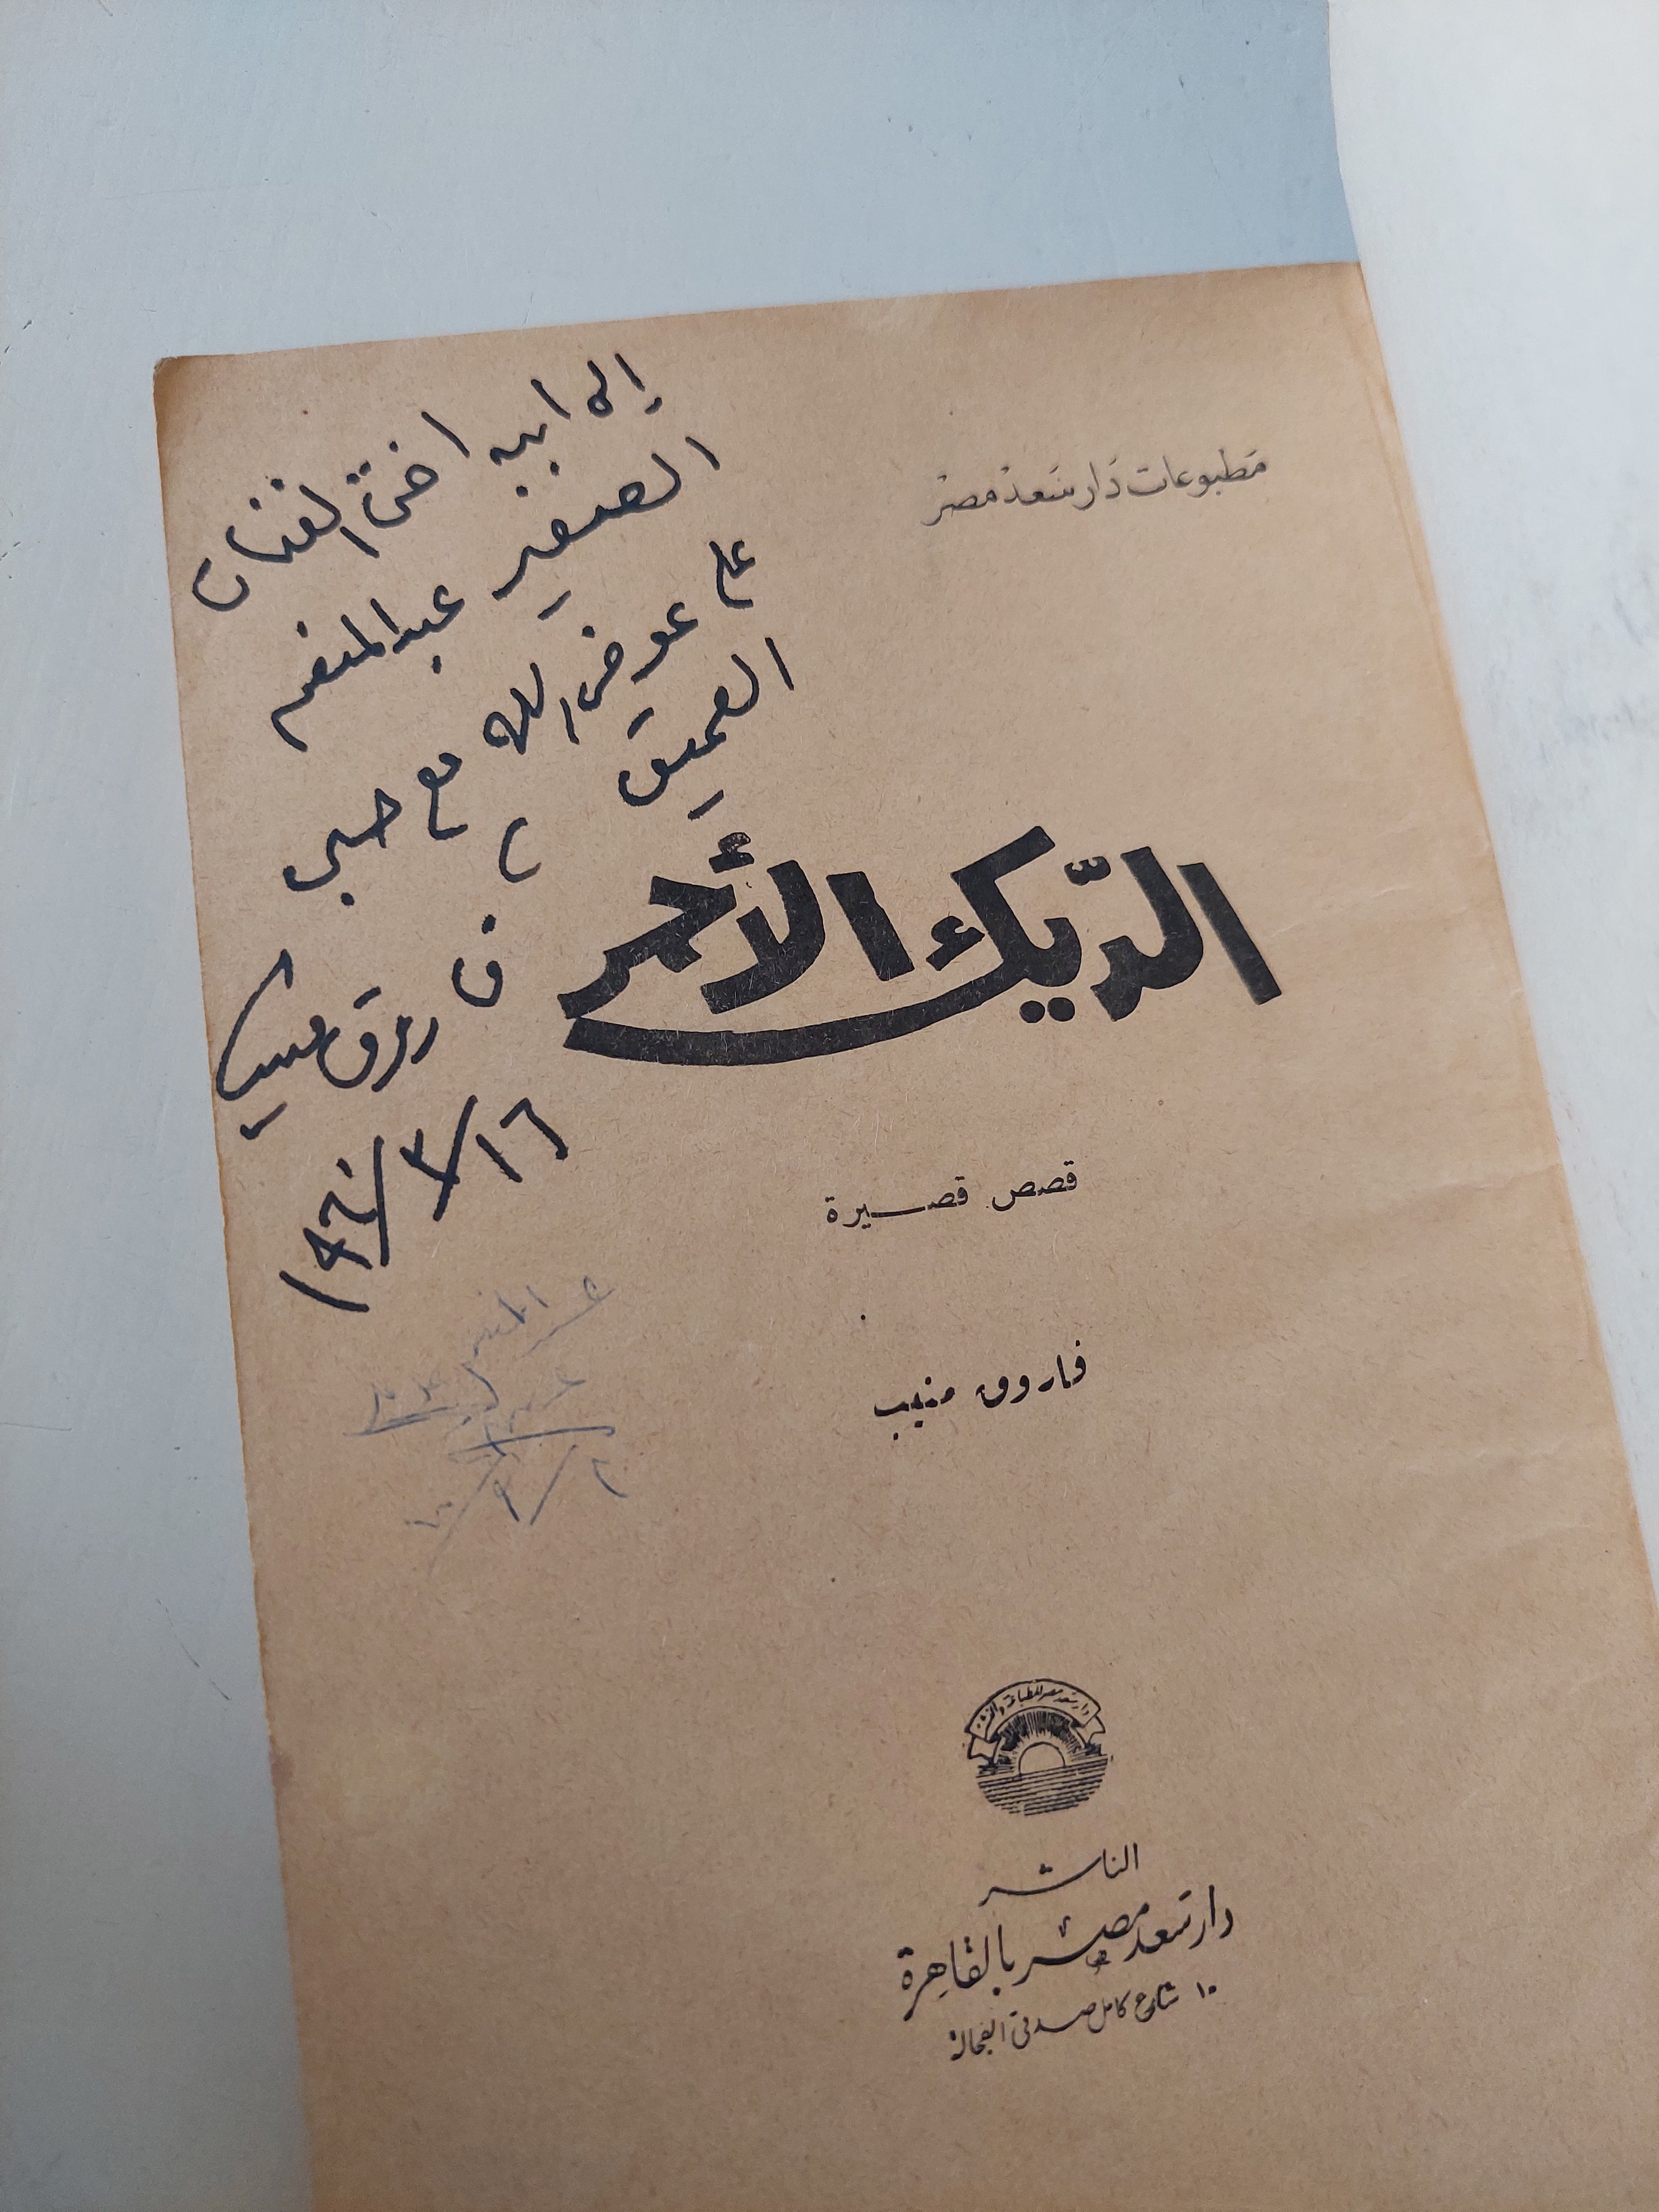 مطبوعات دار سعد مصر
إلى ابن اختى الفنان
الصغير عبد المنعم
على عوض الله مع حبى
العميق
فاروق منيب
١٦/٣/١٩٦٠
الدّيك الأحمر
قصص قصيرة
فاروق منيب
دار سعد مصر للطباعة والنشر
الناشر
دار سعد مصر بالقاهرة
١٠ شارع كامل صدقى الفجالة